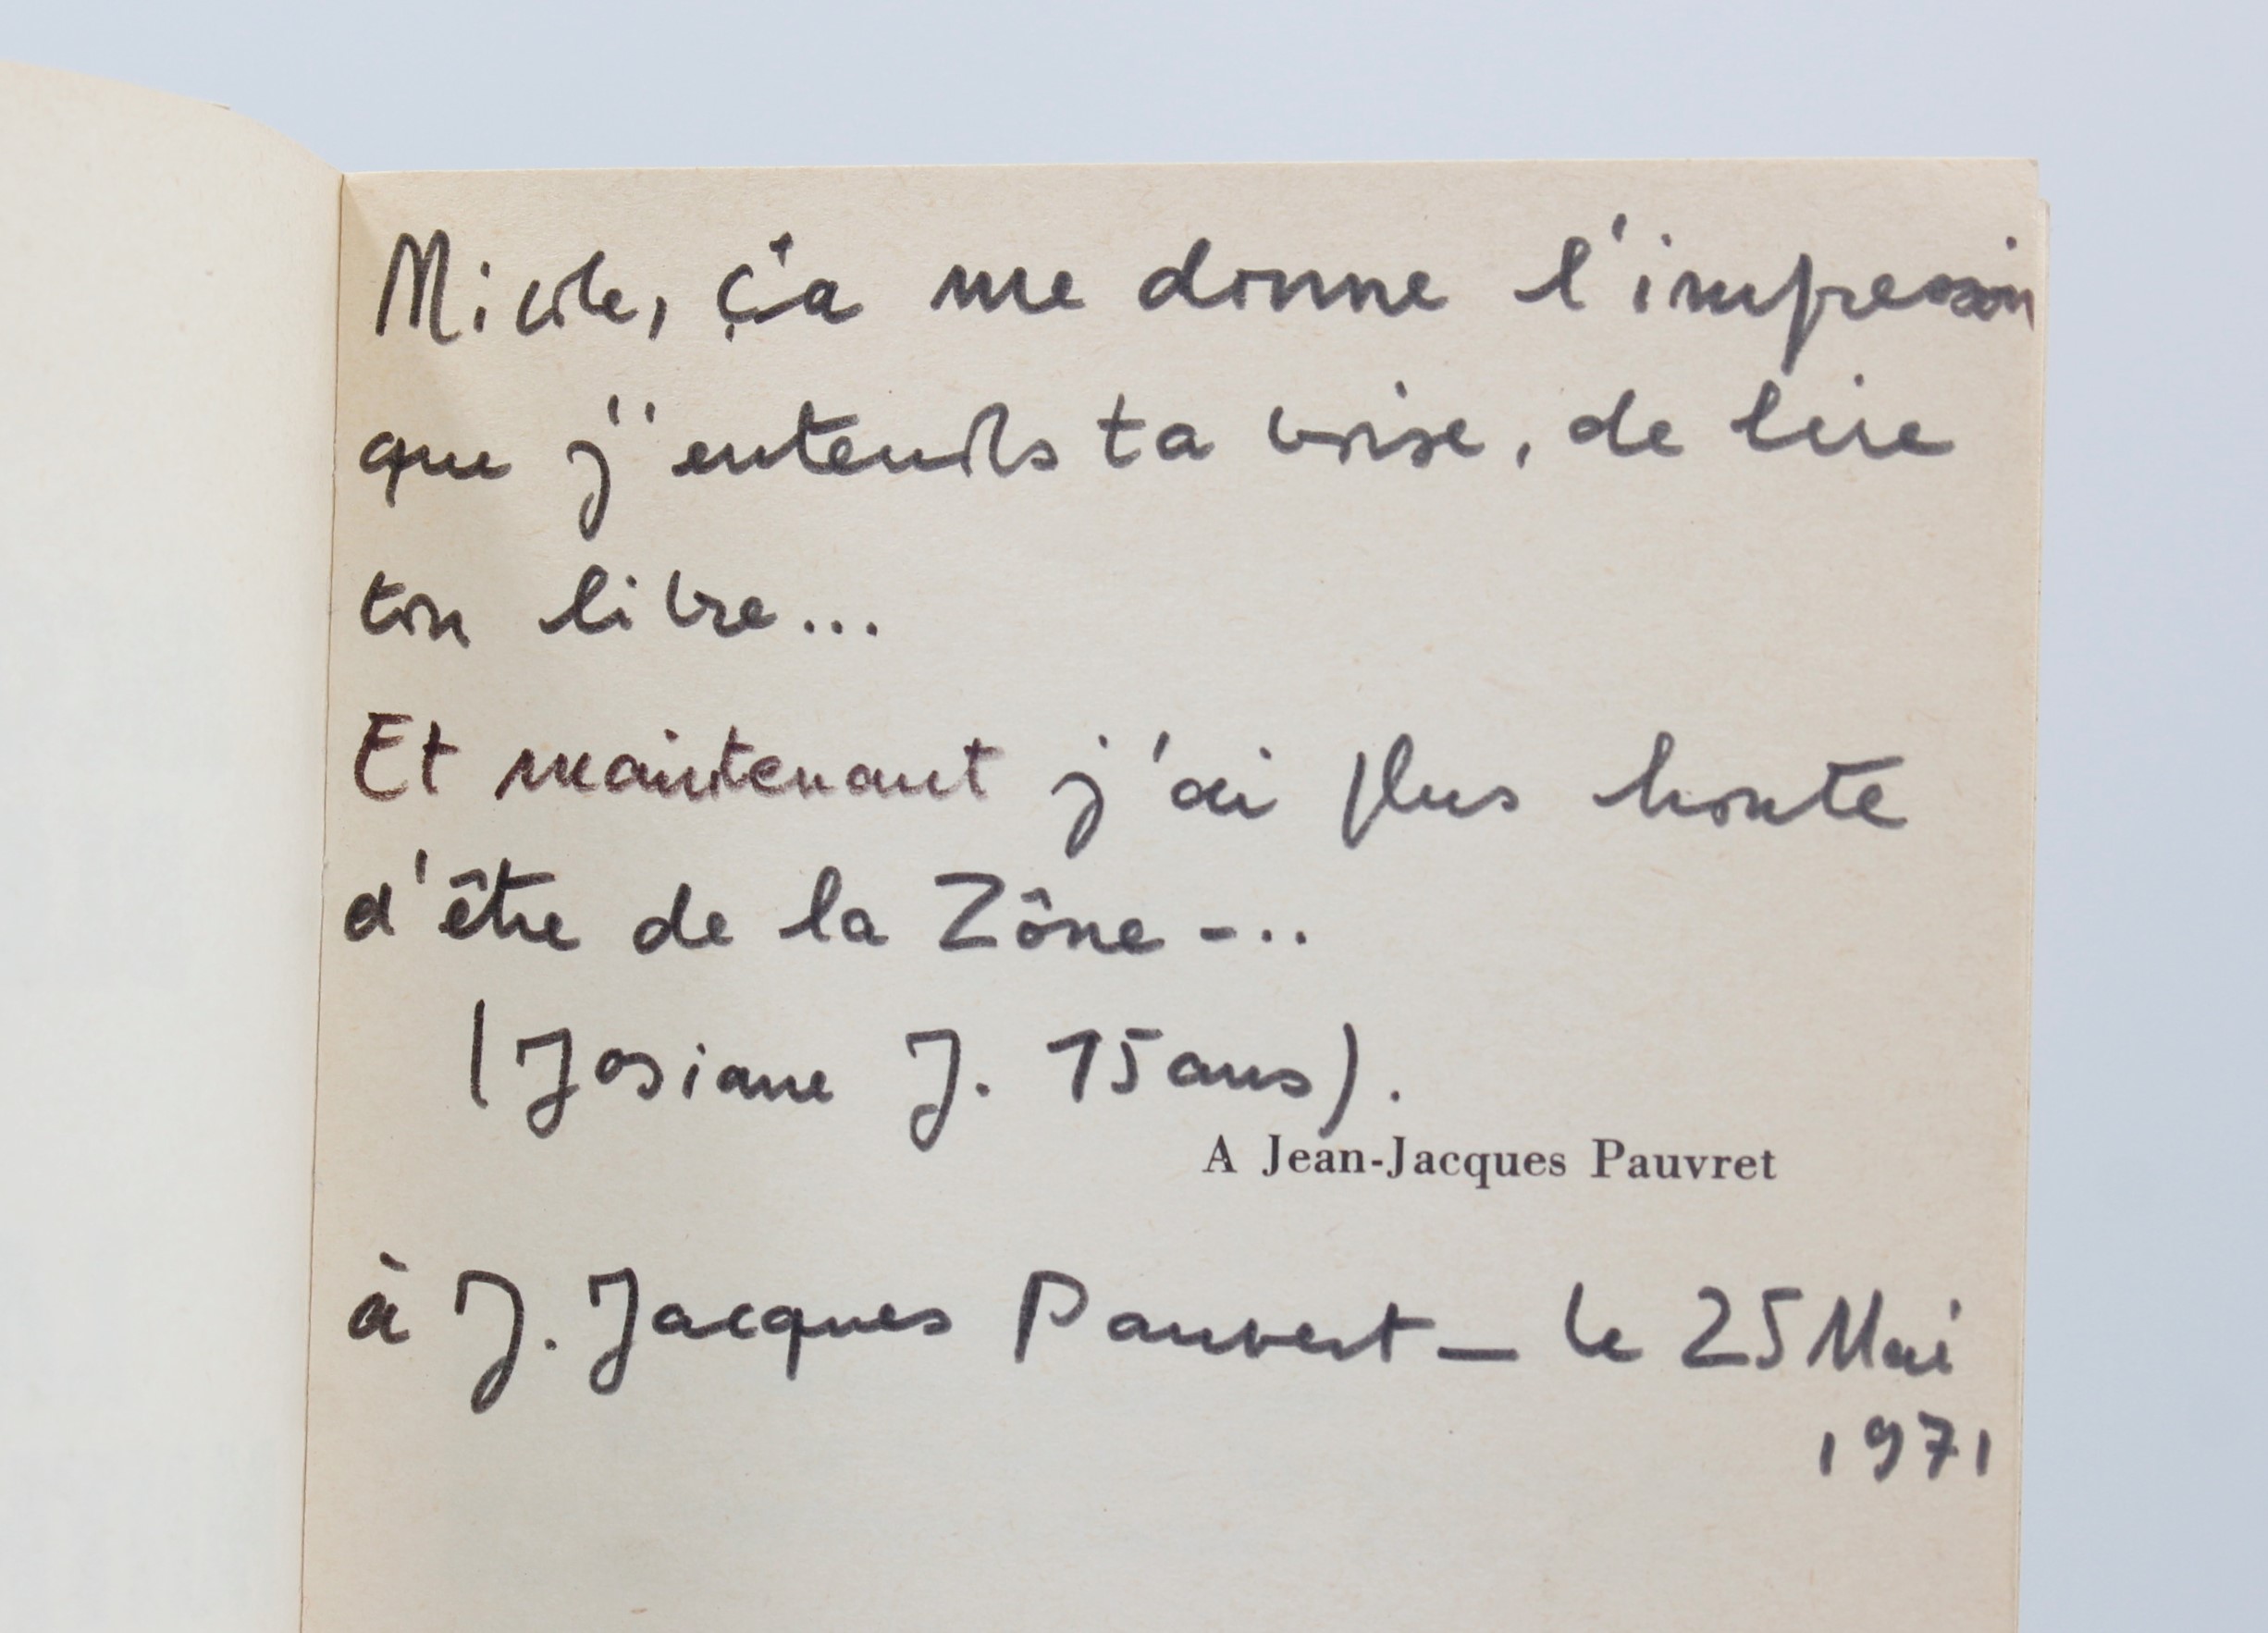 Nicole, ç'a me donne l'impression
que j'entends ta voise, de lire
ton livre...
Et maintenant j'ai plus honte
d'être de la Zône -..
(Josiane J. 15 ans).
A Jean-Jacques Pauvret
à J. Jacques Pauvert _ le 25 Mai
1971